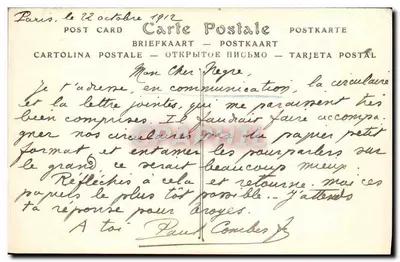 Paris, le 22 octobre 1912
Carte Postale
POST CARD POSTKARTE
BRIEFKAART - POSTKAART
CARTOLINA POSTALE - ОТКРЫТОЕ ПИСЬМО - TARJETA POSTAL
Mon Cher
Je t'adresse, en communication, la circulaire
et la lettre jointes, qui me paraissent très
bien comprises. Il faudrait faire accompa-
gner nos circulaires que du papier petit
format et entamer les pourparlers sur
le grand ce serait beaucoup mieux.
Réfléchis à cela et retourne-moi ces
papiers le plus tôt possible... J'attends
ta réponse pour
A toi Paul Combes